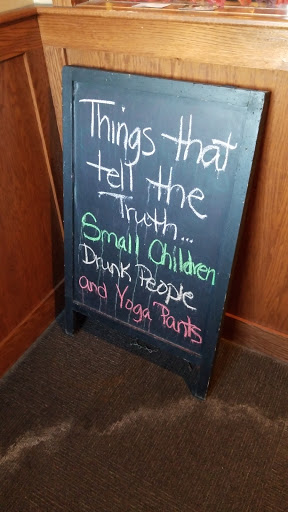 Things that
tell the
Truth...
Small Children
Drunk People
and Yoga Pants